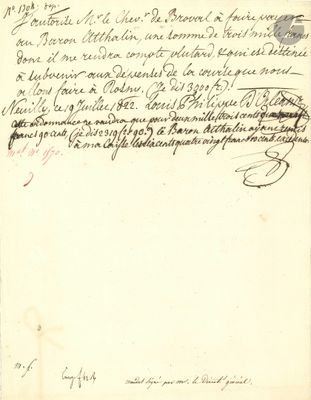 N° 1304. bis.
J'autorise Mr. le Chevr. de Broval à faire payer
au Baron Atthalin, une somme de trois mille francs
dont il me rendra compte plutard, & qui est destinée
à subvenir aux dépenses de la course que nous
allons faire à Rosny. (Je dis 3,000 f.)
Neuilly, ce 19 Juillet 1822. Louis Philippe D'Orléans
cette ordonnance ne vaudra que pour deux mille trois cent
francs 90 cent. (je dis 2310 f 90.) le Baron Atthalin ayant remis
à ma Caisse six cent quatre vingt
Mat. N° 1570.
mandat signé par Mr. le Direct. général.